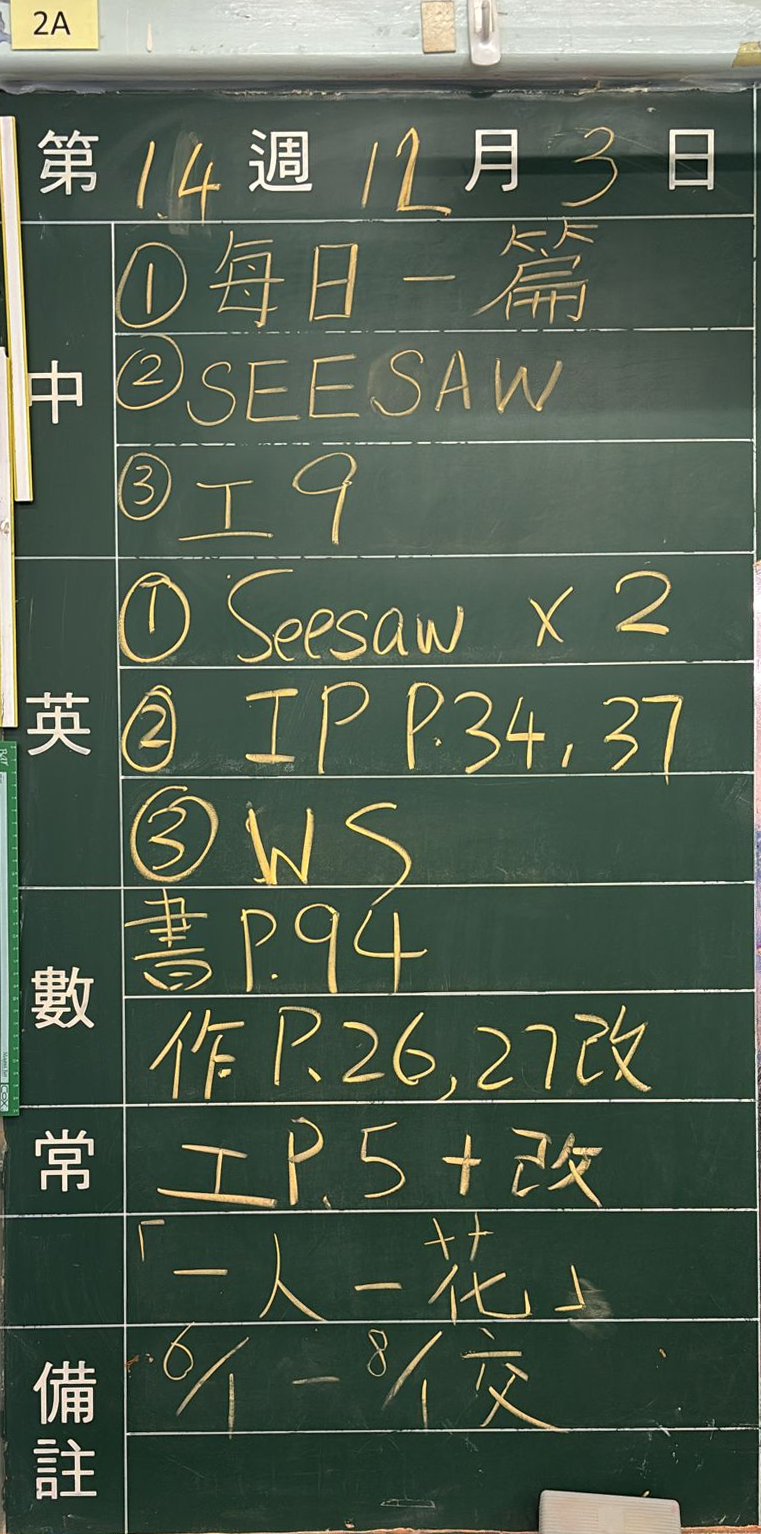 2A
第 14 週 12 月 3 日
中
①每日一篇
②SEESAW
③工9
英
① Seesaw x 2
② IP P.34, 37
③ WS
數
書P.94
作P.26,27改
常
工P.5+改
「一人一花」
備註
6/1-8/1交